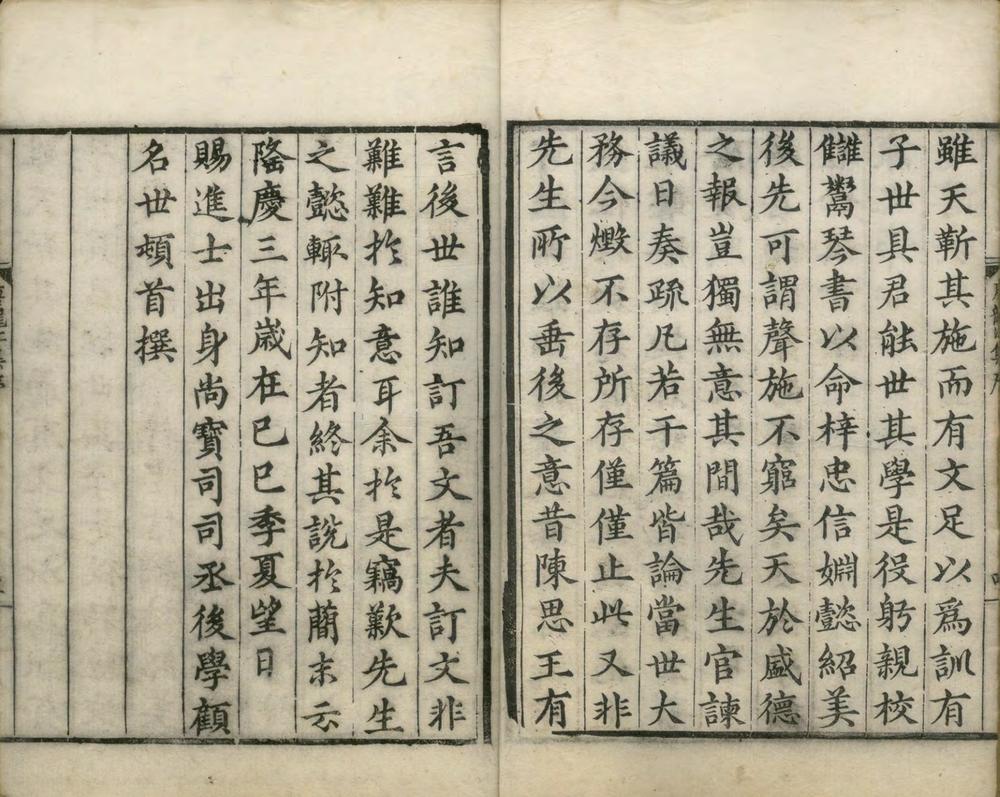 雖天靳其施而有文足以爲訓有
子世具君能世其學是役躬親校
讎鬻琴書以命梓忠信婣懿紹美
後先可謂聲施不窮矣天於盛德
之報豈獨無意其間哉先生官諫
議日奏疏凡若干篇皆論當世大
務今燬不存所存僅僅止此又非
先生所以垂後之意昔陳思王有
言後世誰知訂吾文者夫訂文非
難難於知意耳余於是竊歎先生
之懿輒附知者終其說於蕳末云
隆慶三年歲在己巳季夏望日
賜進士出身尚寶司司丞後學顧
名世頓首撰